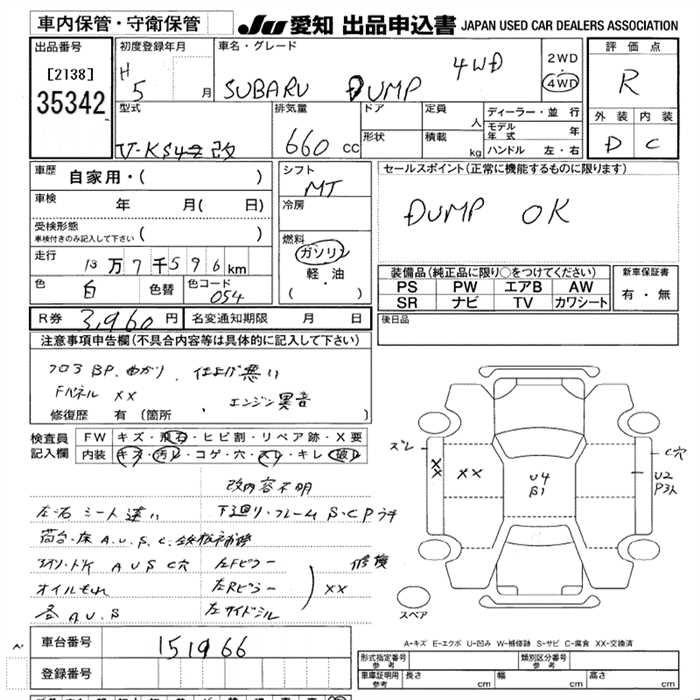 車内保管・守衛保管
JU 愛知 出品申込書 JAPAN USED CAR DEALERS ASSOCIATION
出品番号
[2138]
35342
初度登録年月
H 5 月
車名・グレード
SUBARU DUMP 4WD
2WD
4WD
評価点
R
外装 内装
D C
型式
V-KS4 改
排気量
660 cc
ドア
形状
定員 人
積載 kg
ディーラー・並行
モデル年式 年
ハンドル 左・右
車歴 自家用・( )
車検 年 月( 日)
受検形態
車検付きのみ記入して下さい ( )
走行 13万7千596km
色 白 色替 色コード 054
シフト
MT
冷房
燃料
ガソリン
軽・油
( ・ )
セールスポイント(正常に機能するものに限ります)
DUMP OK
装備品(純正品に限り○をつけてください)
PS PW エアB AW
SR ナビ TV カワシート
新車保証書
有・無
R券 3,960円 名変通知期限 月 日
後日品
注意事項申告欄(不具合内容等は具体的に記入して下さい)
フロア BP.ゆがり、仕上げ悪い
Fパネル XX 、エンジン異音
修復歴 有(箇所
検査員記入欄
FW キズ・飛石・ヒビ割・リペア跡・X要
内装 キズ・汚レ・コゲ・穴・スレ・キレ・破レ
改内容不明
左右シート違い 下廻り・フレーム S・C Pウチ
荷台・床 A.U.S.C.鉄板補修
AUS C穴 左Fピラー 修復
オイルもれ 左Rピラー XX
各 A.U.S 左サイドシル
ズレ
XX
XX
U4
B1
C穴
U2
P3人
スペア
A-キズ E-エクボ U-凹み W-補修跡 S-サビ C-腐食 XX-交換済
車台番号 151966
登録番号
型式指定番号 参考
類別区分番号 参考
車庫証明用 参考 長さ cm 幅 cm 高さ cm